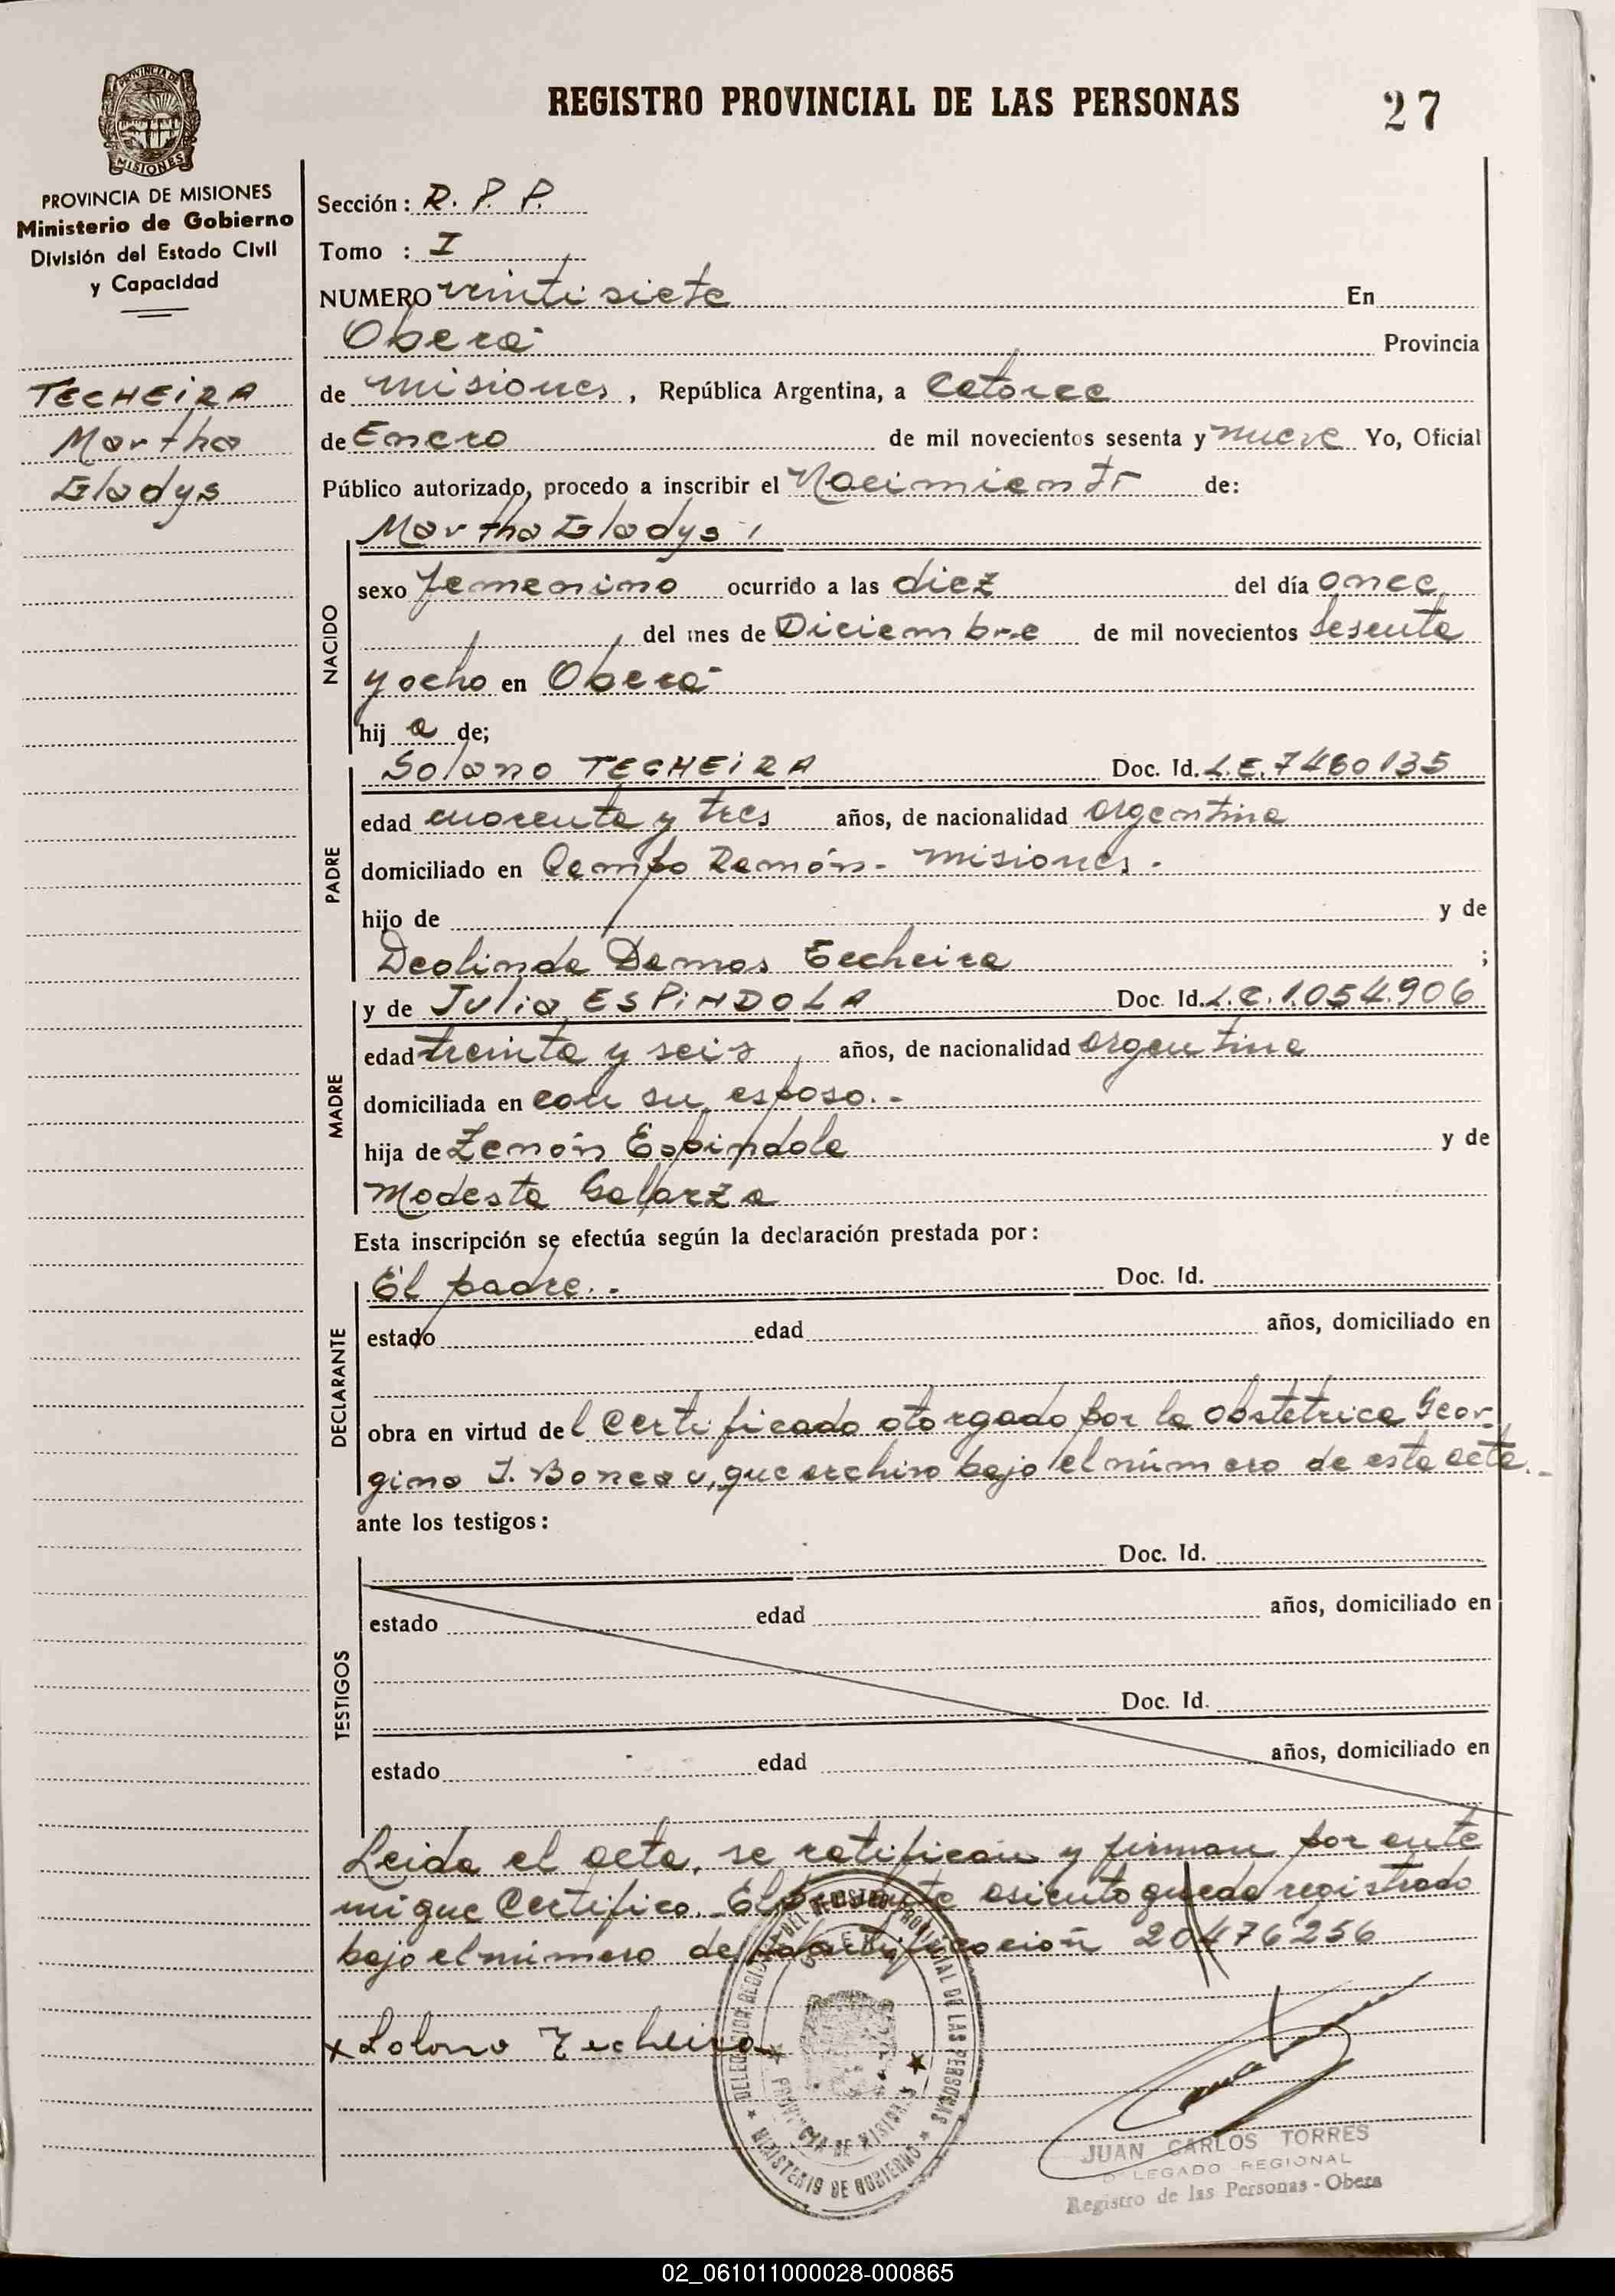 REGISTRO PROVINCIAL DE LAS PERSONAS
27
PROVINCIA DE MISIONES
MISIONES
PROVINCIA DE MISIONES
Ministerio de Gobierno
División del Estado Civil
y Capacidad
TECHEiRA
Martha
Gladys
Sección: R. P. P.
Tomo : I
NUMERO veinti siete En
Oberá Provincia
de misiones, República Argentina, a Catorce
de Enero de mil novecientos sesenta y nueve Yo, Oficial
Público autorizado, procedo a inscribir el Nacimiento de:
Martha Gladys
NACIDO
sexo femenino ocurrido a las diez del día once
del mes de Diciembre de mil novecientos sesenta
y ocho en Oberá
hij a de;
PADRE
Solano TECHEiRA Doc. Id. L.E. 7480135
edad cuarenta y tres años, de nacionalidad argentina
domiciliado en Campo Ramón - misiones.
hijo de y de
Deolinda Damas Techeira ;
MADRE
y de Julia ESPiNDOLA Doc. Id. L.C. 1.054.906
edad treinta y seis años, de nacionalidad argentina
domiciliada en con su esposo.-
hija de Zenón Espíndola y de
Modesta Galarza
Esta inscripción se efectúa según la declaración prestada por:
DECLARANTE
El padre.- Doc. Id.
estado edad años, domiciliado en
obra en virtud del Certificado otorgado por la Obstetrica Geor-
gina J. que archivo bajo el número de esta acta.-
ante los testigos:
TESTIGOS
Doc. Id.
estado edad años, domiciliado en
Doc. Id.
estado edad años, domiciliado en
Leida el acta, se ratifican y firman por ante
mi que Certifico. El presente asiento queda registrado
bajo el número de identificación 20476256
x Solano Techeira
DELEGACION REGIONAL DEL REGISTRO PROVINCIAL DE LAS PERSONAS
PROVINCIA DE MISIONES
MINISTERIO DE GOBIERNO
JUAN CARLOS TORRES
DELEGADO REGIONAL
Registro de las Personas - Obera
02_061011000028-000865